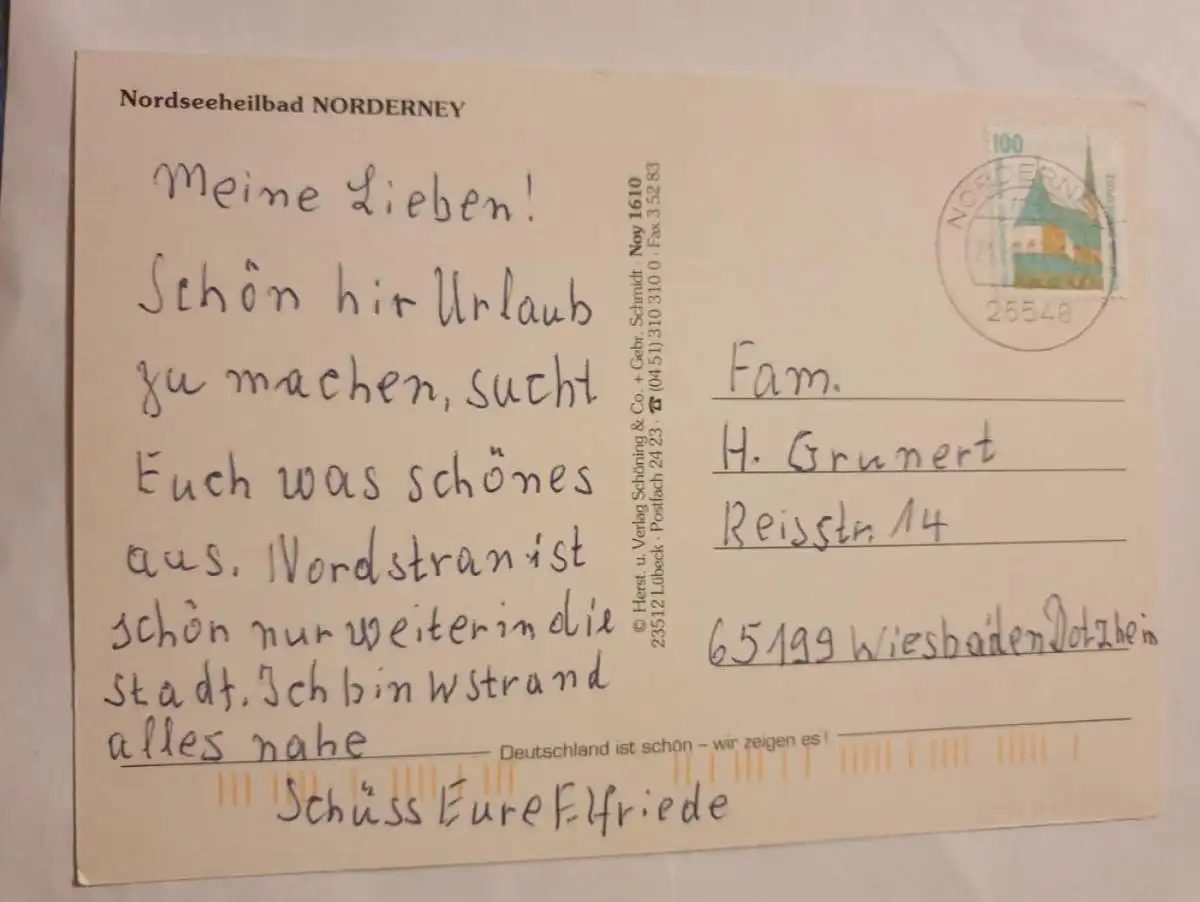 Nordseeheilbad NORDERNEY
Meine Lieben!
Schön hir Urlaub
zu machen, sucht
Euch was schönes
aus. Nordstran ist
schön nur weiter in die
Stadt. Ich bin W strand
alles nahe
Schüss Eure Elfriede
© Herst. u. Verlag Schöning & Co. + Gebr. Schmidt · Noy 1610
23512 Lübeck · Postfach 24 23 · ☎ (04 51) 310 310 0 · Fax 3 52 83
100
NORDERN
26548
Fam.
H. Grunert
Reisstr. 14
65199 Wiesbaden Dotzheim
Deutschland ist schön – wir zeigen es!